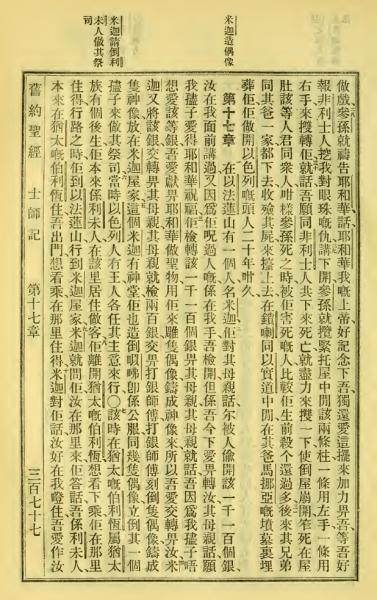 米迦造偶像
米迦請倒利
未人做其祭
司
做戲參孫就禱告耶和華話耶和華我嘅上帝好記念下吾獨還愛這擺來加力畀吾等吾好
報非利士人挖我對眼珠嘅仇講下開參孫就攬緊托屋中間該兩條柱一條用左手一條用
右手來搜轉佢就話吾願同非利士人共下來死亡就盡力來攬一下使倒屋崩開笮死在屋
肚該等人君同衆人咁樣參孫死之時被佢害死嘅人比較佢生前殺個還過多後來其兄弟
同其爸一家都下去收殮其屍來擡上去在鎖喇同以實道中間在其爸馬挪亞嘅墳墓裏埋
葬佢佢做開以色列嘅頭人二十年咁久
第十七章 在以法蓮山有一個人名米迦佢對其母親話尔被人偷開該一千一百個銀
汝在我面前講過又因爲佢呪過人嘅係在我手吾檢開但係吾今下愛畀轉汝其母親話願
我孻子愛得耶和華祝福佢檢轉該一千一百個銀畀其母親其母親就話吾因爲我孻子唔
想愛該等銀吾愛獻畀耶和華做聖物用佢來雕隻偶像鑄成神像來所以吾愛交轉畀汝米
迦又將該銀交轉畀其母親其母親就檢兩百銀交畀打銀師傅打銀師傅刻倒隻偶像鑄成
隻神像放在米迦屋家這個米迦有神堂佢也造倒嗯咈𠵽係公服同幾隻偶像立倒其一個
孻子來做其祭司當時以色列人冇王人各任其主意來行〇該時在猶大嘅伯利恆屬猶太
族有個後生佢本來係利未人在該里居住做客佢離開猶大嘅伯利恆想看下乘在那里
住得行路之時佢到以法蓮山行到米迦屋家米迦就問佢汝在那里來佢答話吾係利未人
本來在猶太嘅伯利恆住吾出門想看乘在那里住得米迦對佢話汝好在我嶝住吾愛作汝
舊約聖經 士師記 第十七章 三百七十七